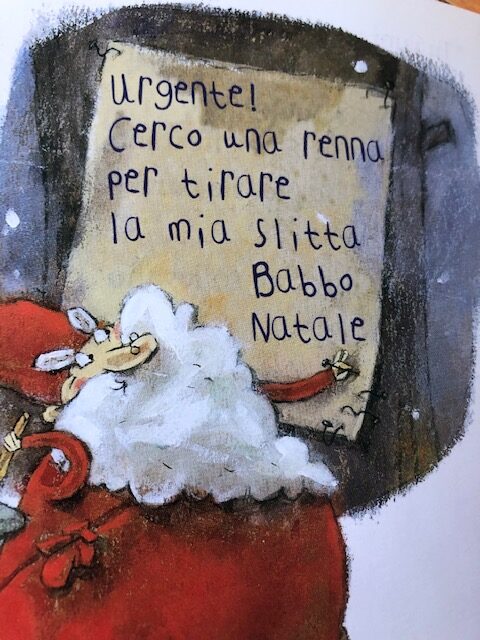 urgente!
Cerco una renna
per tirare
la mia slitta
Babbo
Natale